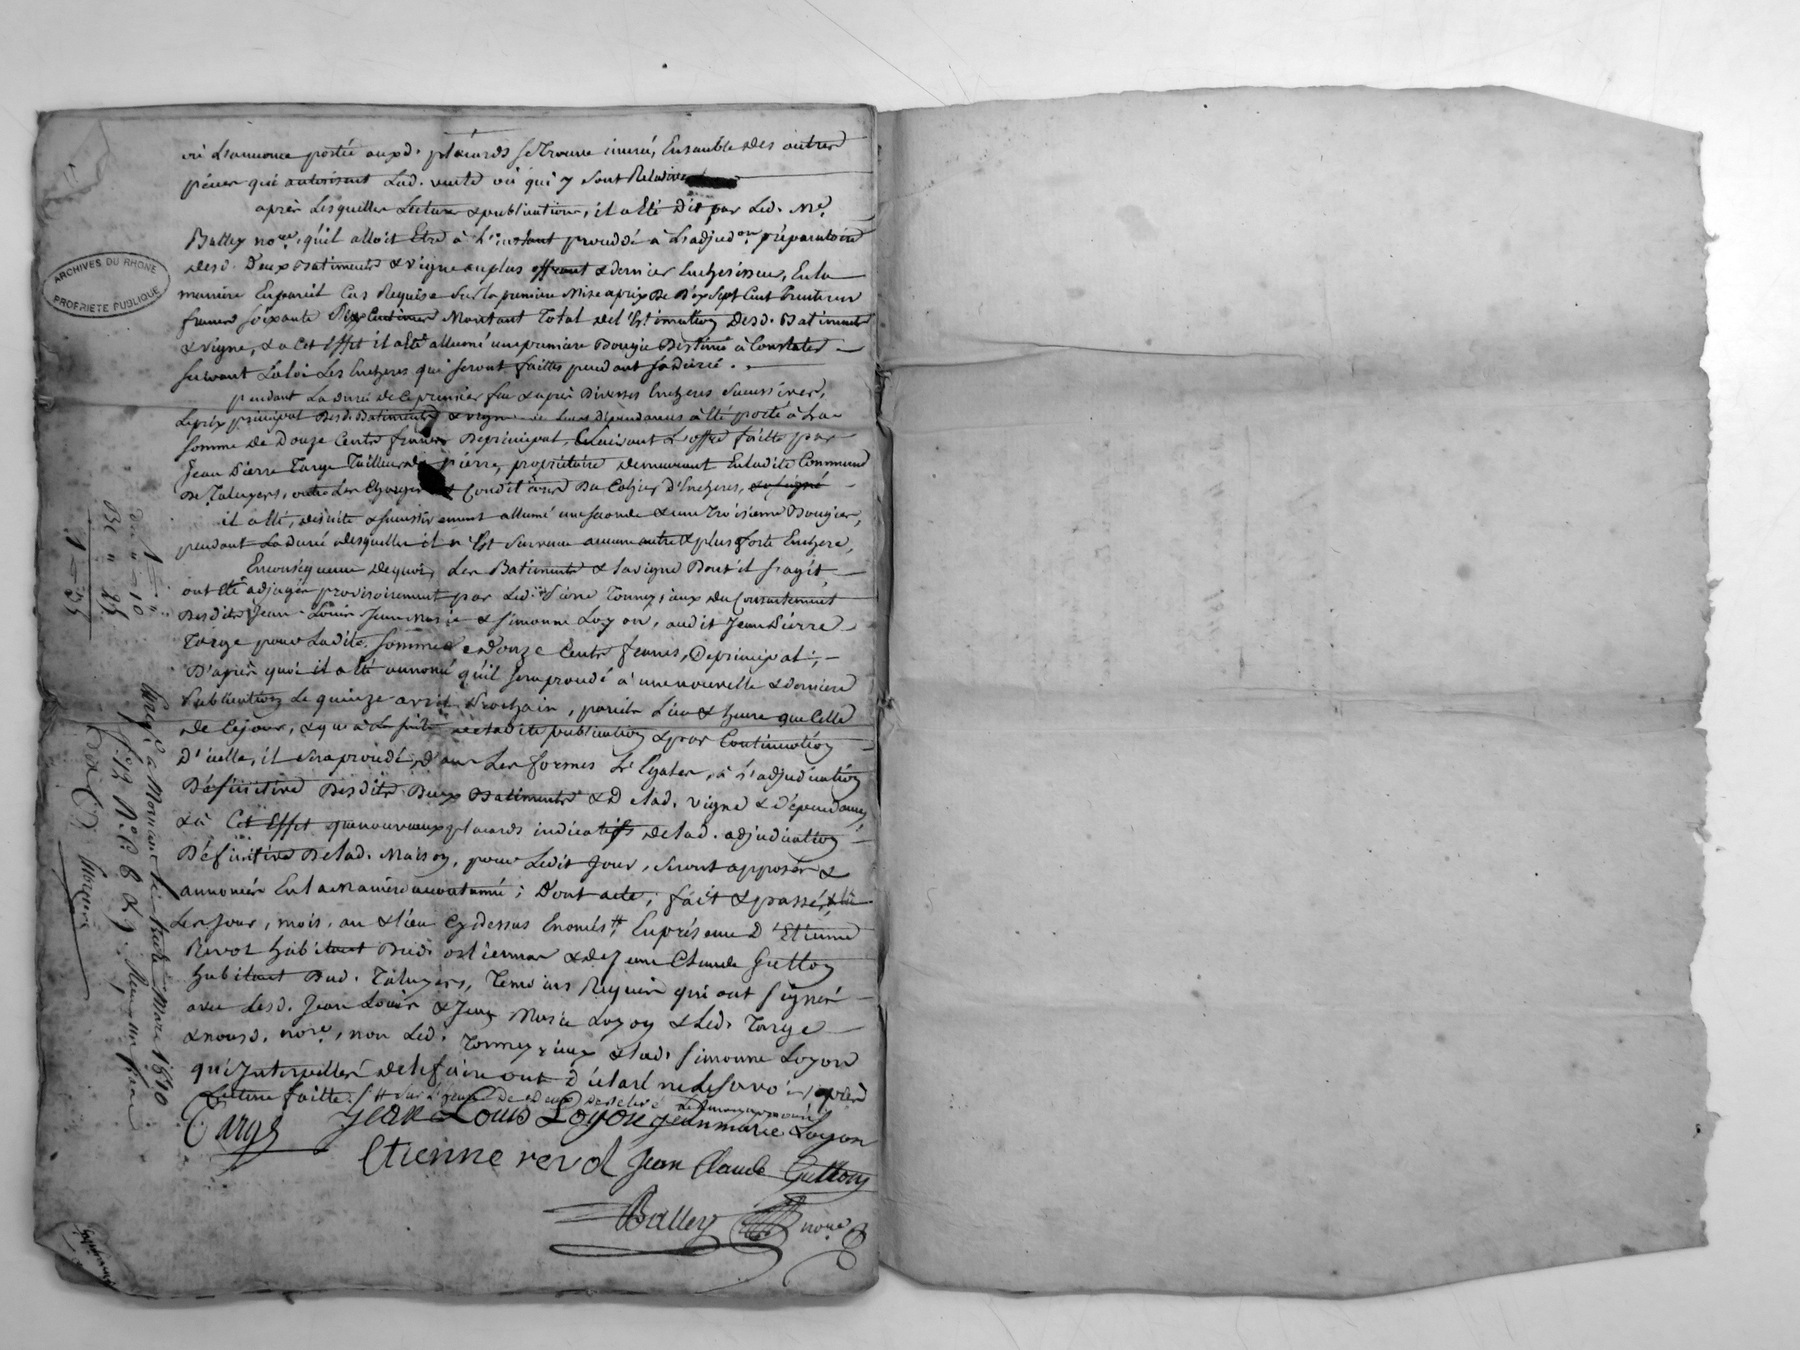 où L'annonce portée auxd. placards se trouve inséré, Ensemble des autres
pièces qui autorisent Lad. vente où qui y sont Relatives
après Lesquelles Lecture & publication, il a Eté dit par Led. Me.
Balley nore, qu'il alloit Etre à L'instant procédé à L'adjudon préparatoire
desd. Deux Batiments & vigne au plus offrant & dernier Enchérisseur, En la
manière En pareil Cas Requise sur la première Mise à prix De Dix Sept Cent trente un
francs soixante Six Centimes Montant Total de l'Estimation Desd. Batiments
& vigne, & à Cet Effet il a Eté allumé une première Bougie Destinée à Constater
suivant La loi Les Enchères qui seront faittes pendant sa durée.
pendant La durée de Ce premier feu & après Diverses Enchères successives,
Le prix principal Desd. Batiments & vigne dépendances a Eté porté à La
somme de Douze Cents francs De principal, Suivant L'offre faitte par
Jean Pierre Targe Tailleur de pierre, propriétaire demeurant En ladite Commune
De Taluyers, outre Les Charges et Conditions Du Cahier d'Enchères,
il a Eté, de suite & successivement allumé une seconde & une Troisième Bougies,
pendant La durée desquelles il n'Est survenu aucune autre & plus forte Enchère,
En conséquence de quoi, Les Batiments & la vigne Dont il s'agit,
ont Eté adjugés provisoirement par Led. Pierre Tonnerieux du Consentement
Desdits Jean Louis Jean Marie & Simonne Loyon, audit Jean Pierre
Targe pour Ladite somme de Douze Cents francs, De principal;
D'après quoi il a Eté annoncé qu'il sera procédé à une nouvelle & dernière
Publication Le quinze avril Prochain, pareils Lieu & heure que Celle
de Ce jour, & qu'à La suite de ladite publication & par Continuation
D'icelle, il sera procédé, dans Les formes Légales, à L'adjudication
Définitive Desdits Deux Batiments & De lad. vigne & dépendances,
& à Cet Effet que nouveaux placards indicatifs de lad. adjudication
Définitive De lad. Maison, pour Ledit Jour, seront apposés &
annoncés En la manière accoutumé; Dont acte; fait & passé, & lu
Les Jour, mois, an & lieu Cy dessus Enoncés, En présence D'Etienne
Revol habitant Dud. & de Jean Claude Guttoy
habitant Dud. Taluyers, Témoins Requis qui ont signé
avec Lesd. Jean Louis & Jean Marie Loyon & Led. Targe
& nousd. nore, non Led. Tonnerieux & lad. Simonne Loyon
qui Interpellés de le faire ont déclaré ne Le savoir, après
Lecture faitte.
Targe Jean Louis Loyon Jean marie Loyon
Etienne revol Jean Claude Guttoy
Balley nore
ARCHIVES DU RHONE
PROPRIETE PUBLIQUE
Enregé à Mornant Mars 1810